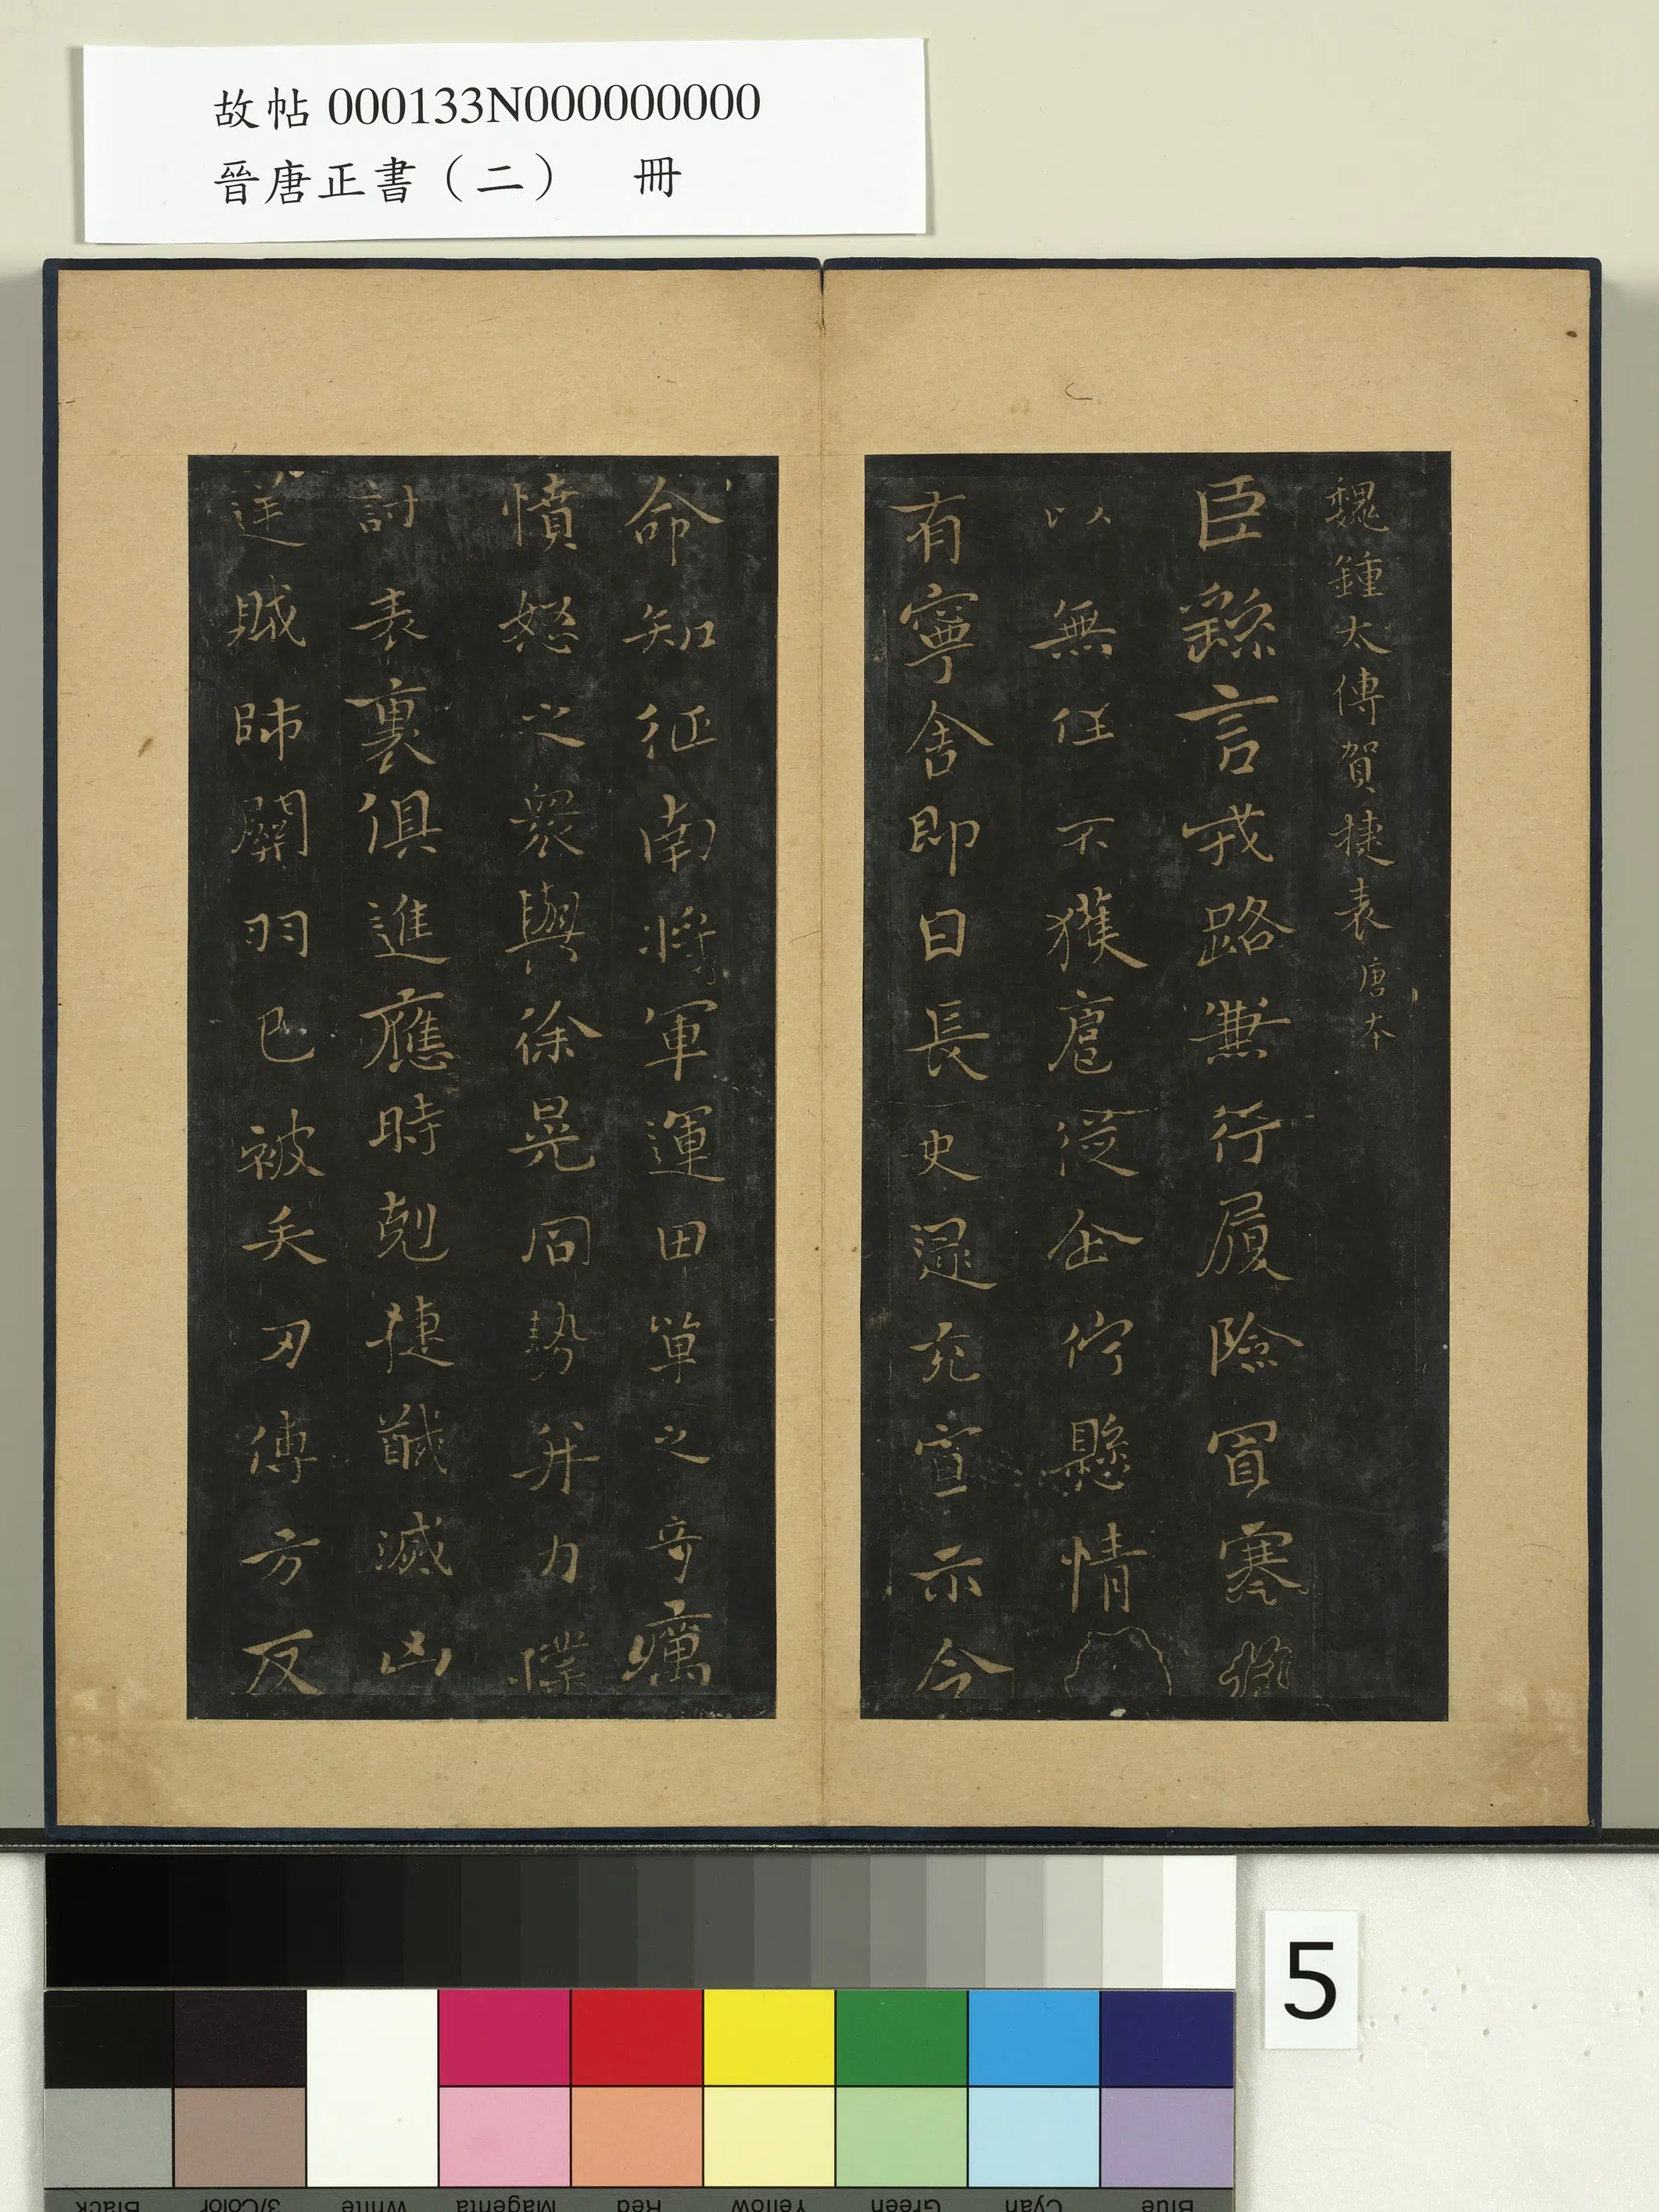 故帖000133N000000000
晉唐正書（二） 冊
魏鍾太傅賀捷表唐本
臣繇言戎路兼行履險冒寒
以無任不獲扈從企佇懸情
有寧舍即日長史逯充宣示令
命知征南將軍運田單之奇癘
憤怒之衆與徐晃同勢并力
討表裏俱進應時剋捷馘滅凶
逆賊帥關羽已被矢刃傅方反
5
Black
3/Color
White
Magenta
Red
Yellow
Green
Cyan
Blue